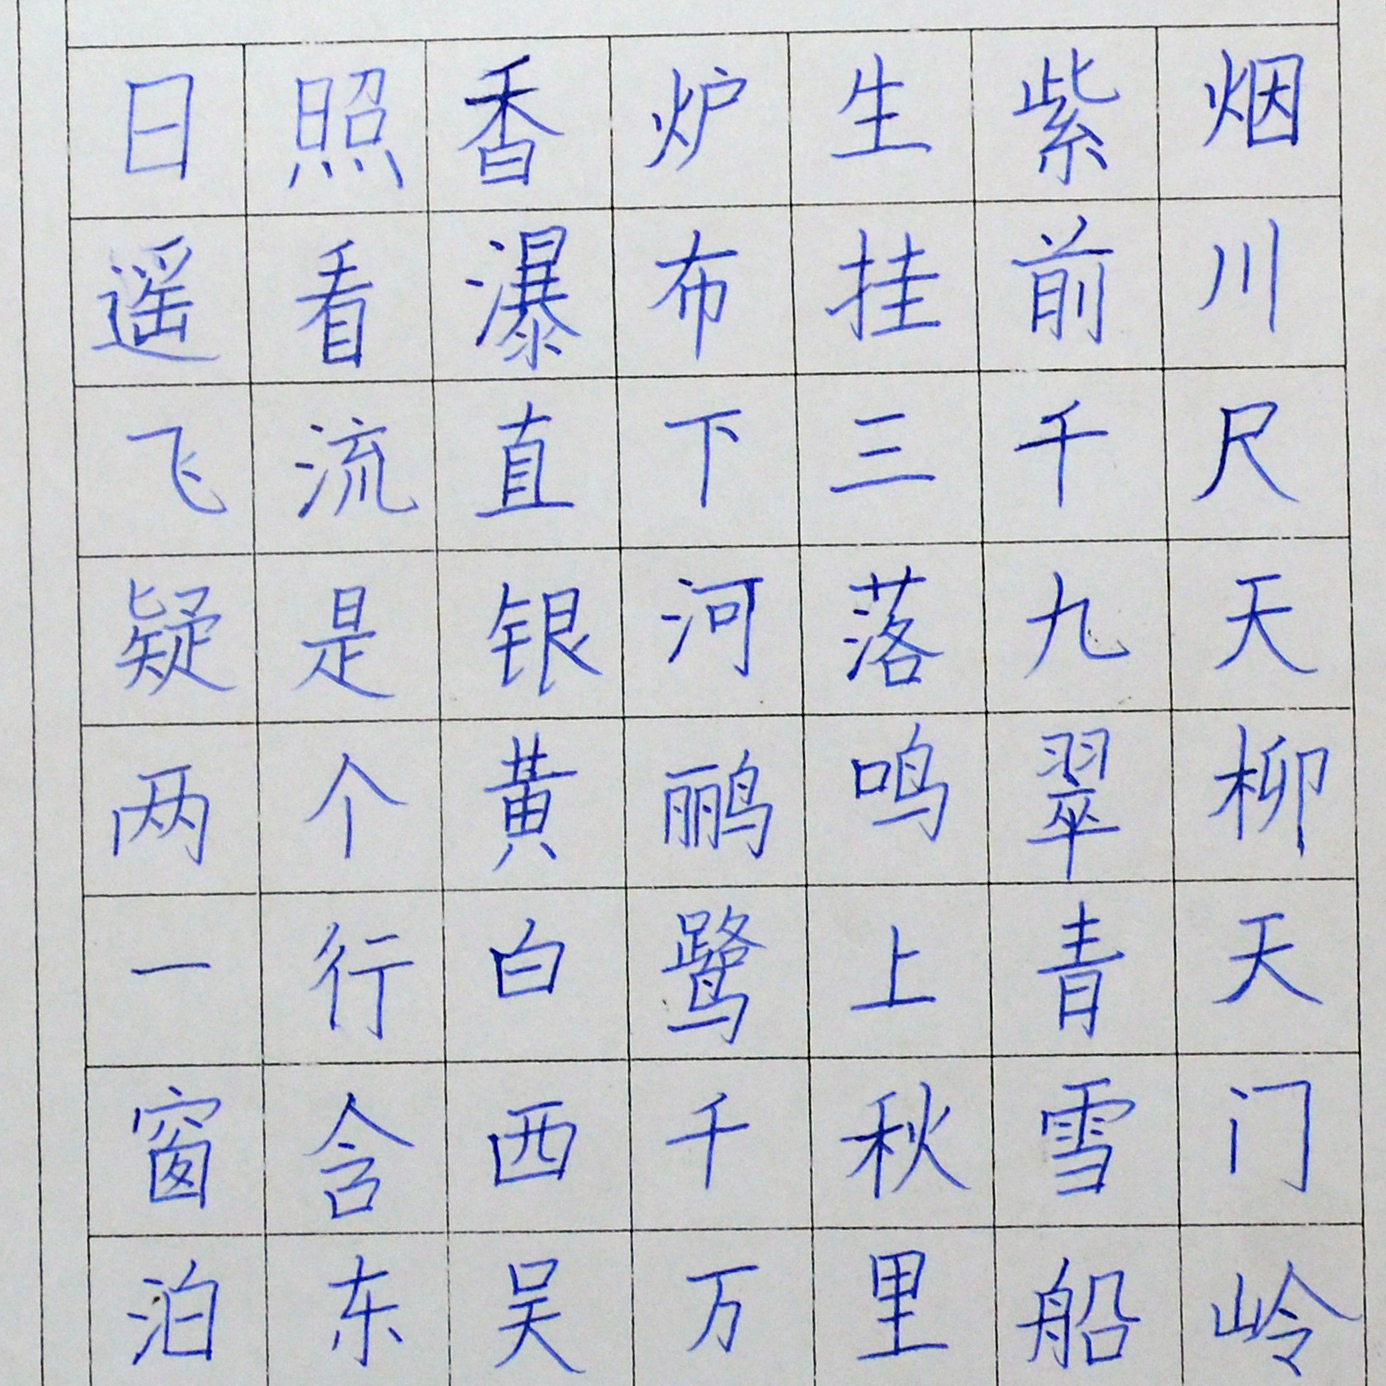 日照香炉生紫烟
遥看瀑布挂前川
飞流直下三千尺
疑是银河落九天
两个黄鹂鸣翠柳
一行白鹭上青天
窗含西千秋雪门
泊东吴万里船岭